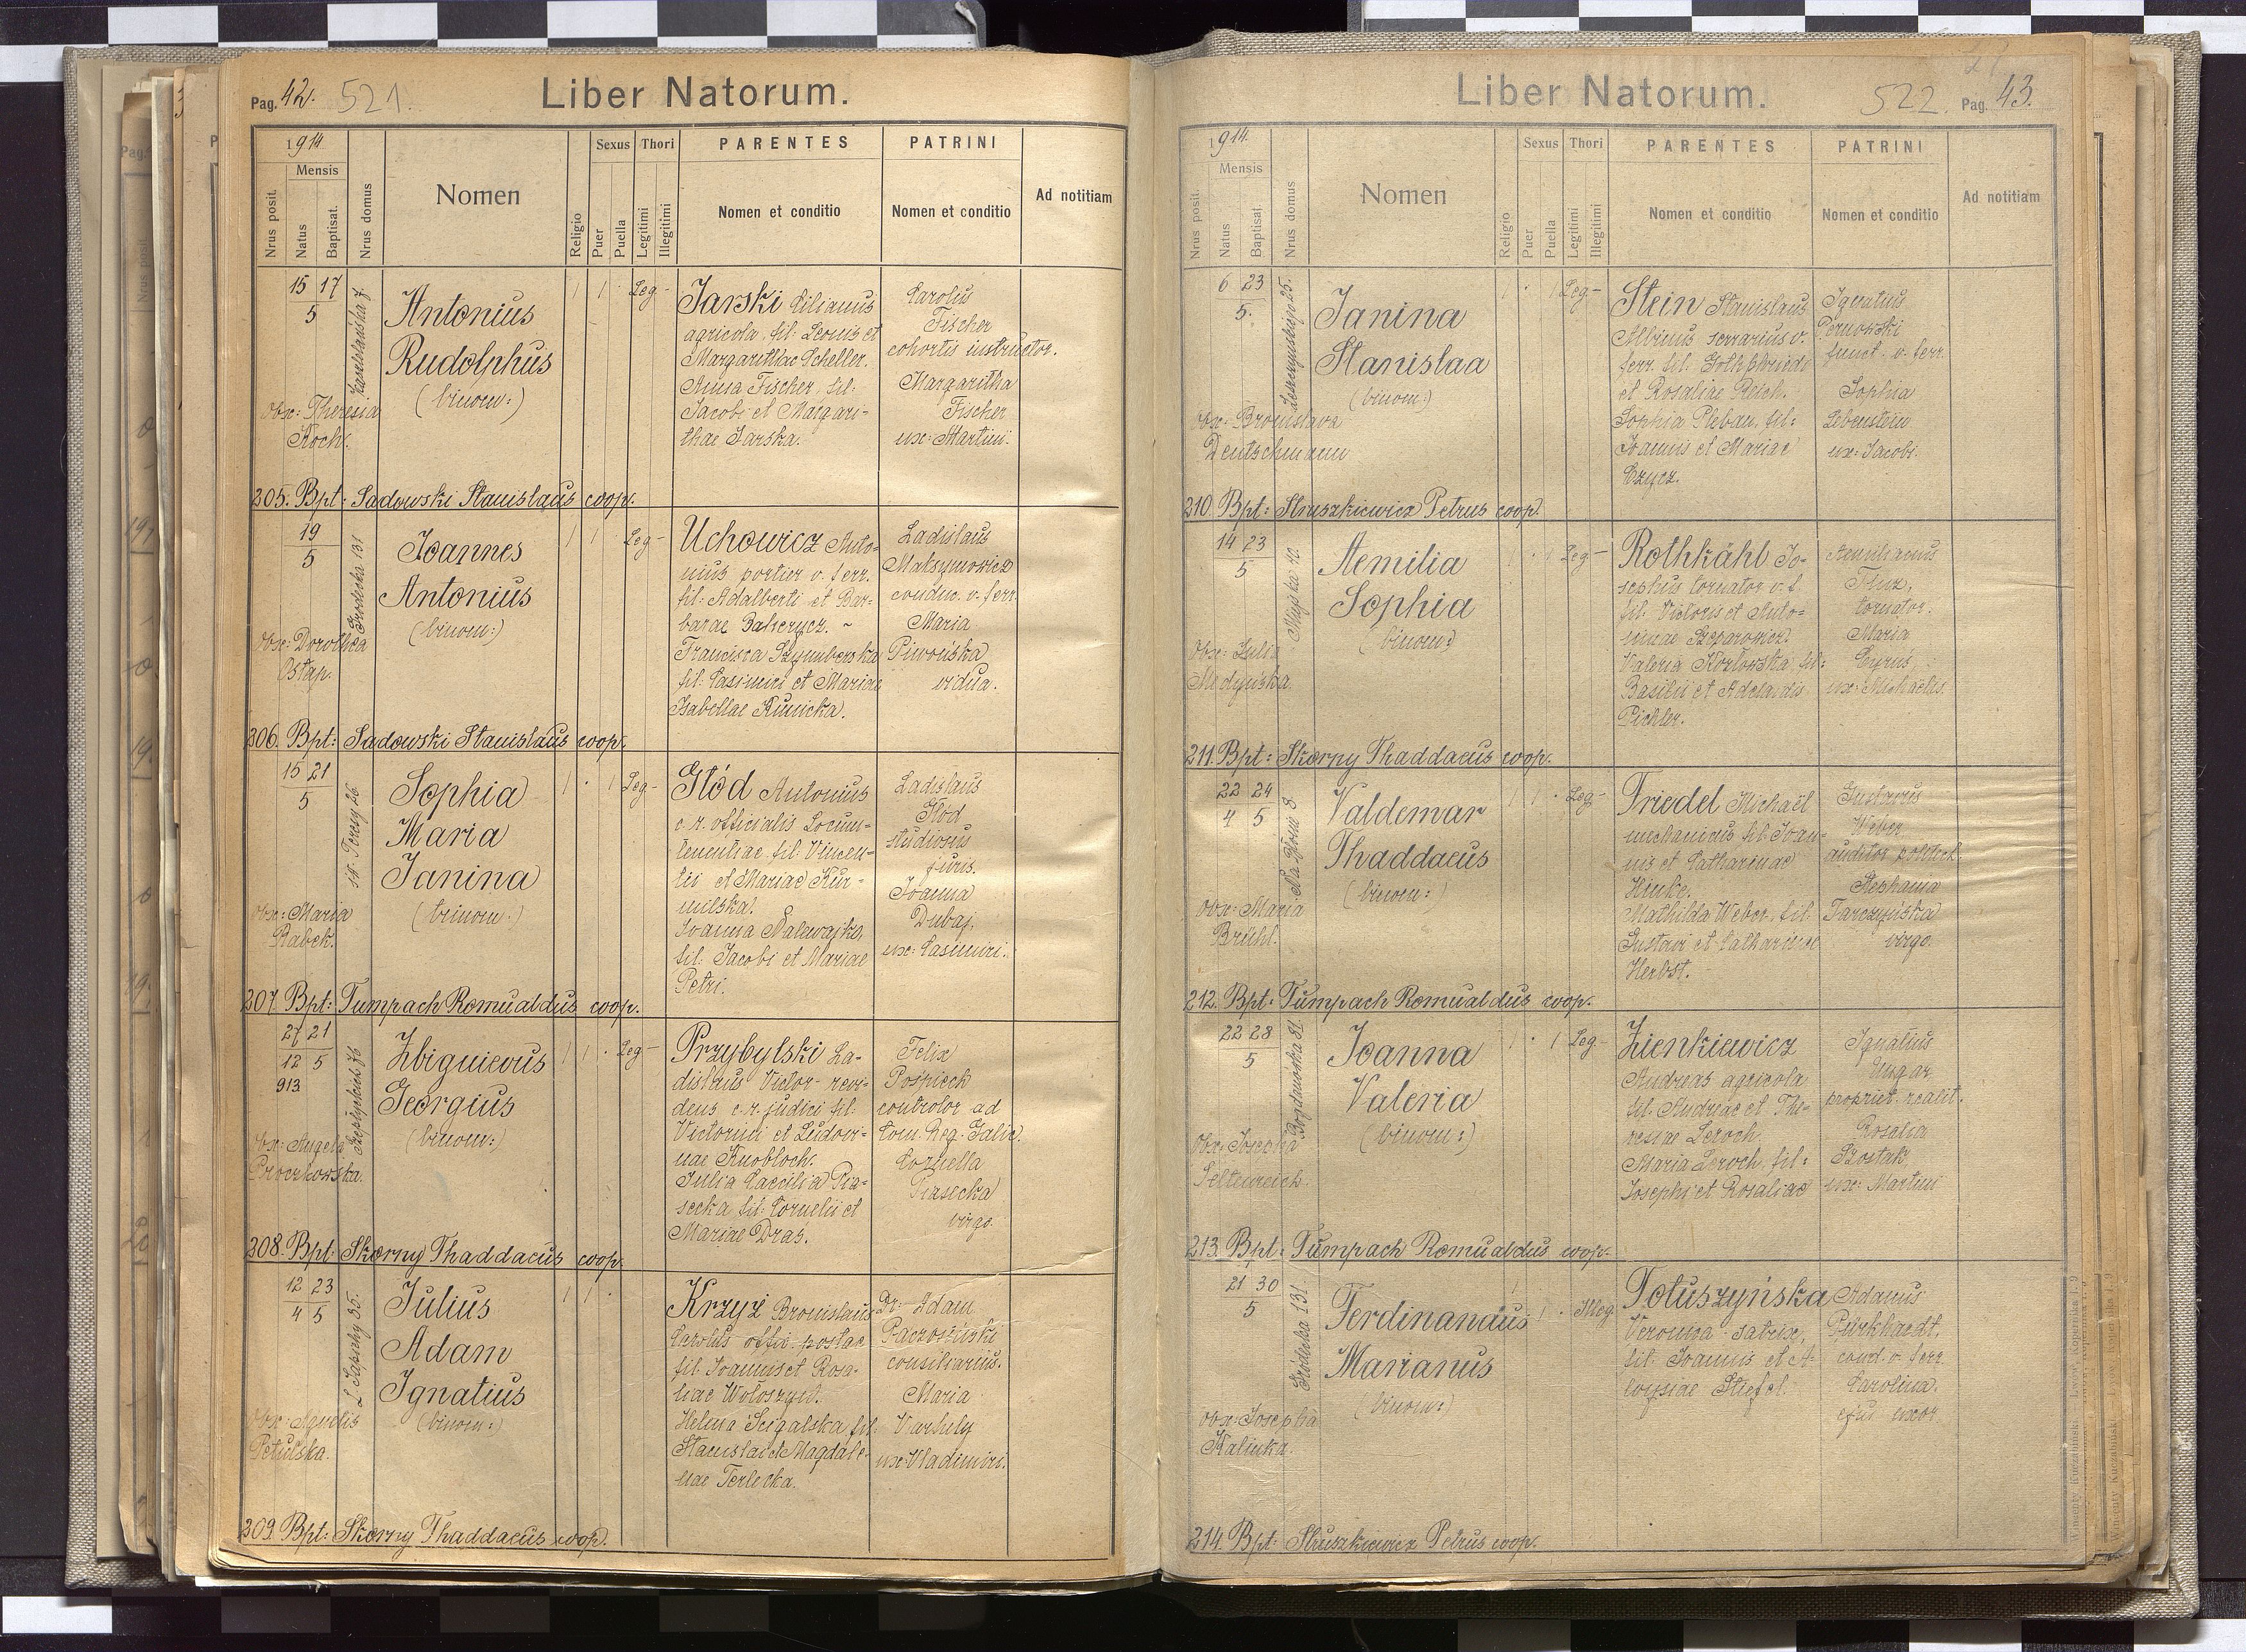 Pag. 42. 521.
Liber Natorum.
1914.
Mensis
Nrus posit.
Natus
Baptisat.
Nrus domus
Nomen
Religio
Sexus
Puer
Puella
Thori
Legitimi
Illegitimi
PARENTES
Nomen et conditio
PATRINI
Nomen et conditio
Ad notitiam
15 17
5
Antonius
Rudolphus
(binom:)
Obx: Theresia
Koch.
1 1 · Leg -
Jarski Kilianus
agricola, fil: Leonis et
Margarithae Scheller.
Anna Fischer, fil:
Jacobi et Margari-
thae Jarska.
Carolus
Fischer
cohortis instructor.
Margaritha
Fischer
ux: Martini.
205. Bpt: Sadowski Stanislaus coop.
19
5
Grodecka 131
Joannes
Antonius
(binom:)
Obx: Dorothea
Ostap.
1 1 Leg -
Uchowicz Anto-
nius portier v. ferr.
fil: Adalberti et Bar-
barae
Francisca Szymberska
fil: Casimiri et Mariae
Isabellae Kunicka.
Ladislaus
Maksymowicz
conduc. v. ferr.
Maria
Piwońska
vidua.
206. Bpt: Sadowski Stanislaus coop.
15 21
5
St. Teresy 26.
Sophia
Maria
Janina
(trinom:)
Obx: Maria
Rabek.
1 · 1 Leg -
Głód Antonius
c. r. officialis Locum-
tenentiae fil: Vincen-
tii et Mariae Kur-
milska.
Joanna Nalewajko,
fil: Jacobi et Mariae
Petri.
Ladislaus
Kłod
studiosus
juris.
Joanna
Dubaj,
ux: Casimiri.
207. Bpt: Tumpach Romualdus coop.
27 21
12 5
913
Szeptyckich 76
Zbignievus
Georgius
(binom:)
Obx: Angela
Proczkowska.
1 1 · Leg -
Przybylski La-
dislaus Victor - revi-
dens c. r. judici fil:
Victorini et Ludovi-
nae Knobloch.
Julia Caecilia Pia-
secka fil: Cornelii et
Mariae Dras.
Felix
Pospiech
controlor ad
Com. Reg. Galic.
Cornella
Piasecka
virgo.
208. Bpt: Skorny Thaddaeus coop.
12 23
4 5
L. Sapiehy 35.
Julius
Adam
Ignatius
(binom:)
Obx: Agnelis
Petulska.
1 1 ·
Krzyż Bronislaus
Carolus offic. postae
fil: Joannis et Rosa-
liae Wołoszyn.
Helena Ścigalska, fil:
Stanislai et Magdale-
nae Terlecka.
Dr: Adam
Paczosiński
consiliarius.
Maria
Varhuly
ux: Vladimiri.
209. Bpt: Skorny Thaddaeus coop.
Liber Natorum.
522. Pag. 43.
1914.
Mensis
Nrus posit.
Natus
Baptisat.
Nrus domus
Nomen
Religio
Sexus
Puer
Puella
Thori
Legitimi
Illegitimi
PARENTES
Nomen et conditio
PATRINI
Nomen et conditio
Ad notitiam
6 23
5.
Janina
Stanislaa
(binom:)
Obx: Bronislava
Deutschmann
1 · 1 Leg -
Stein Stanislaus
Albinus serrarius v.
ferr. fil. Gothfriedi
et Rosaliae Reich.
Sophia Pleban, fil:
Joannis et Mariae
Czycz.
Ignatius
Pernowski
funct. v. ferr.
Sophia
Lebenstein
ux: Jacobi.
210. Bpt: Struszkiewicz Petrus coop.
14 23
5
Aemilia
Sophia
(binom:)
Obx: Julia
Medyńska.
1 · 1 Leg -
Rothkähl Jo-
sephus tornator v. f.
fil: Victoris et Anto-
ninae Szparowicz.
Valeria Kozłowska fil:
Basilii et Adelaidis
Pichler.
Aemilianus
tornator.
Maria
Cyrus,
ux: Michaelis.
211. Bpt: Skorny Thaddaeus coop.
22 24
4 5
Na Błonie 8
Valdemar
Thaddaeus
(binom:)
Obx: Maria
Brühl.
1 1 · Leg -
Friedel Michaël
mechanicus fil: Joan-
nis et Catharinae
Hinke.
Mathilda Weber, fil:
Gustavi et Catharinae
Herbst.
Gustavus
Weber
auditor politech.
Stephania
Tarczyńska
virgo.
212. Bpt: Tumpach Romualdus coop.
22 28
5
Bogdanówka 81.
Joanna
Valeria
(binom:)
Obx: Josepha
Seltenreich.
1 · 1 Leg -
Zienkiewicz
Andreas agricola
fil: Andreae et The-
resiae Leroch.
Maria Leroch, fil:
Josephi et Rosaliae
Ignatius
Ungar
propriet. realit.
Rosalia
Szostak
ux: Martini
213. Bpt: Tumpach Romualdus coop.
21 30
5
Gródecka 131.
Ferdinandus
Marianus
(binom:)
Obx: Josepha
Kalinka.
1 1 · Illeg.
Potuszyńska
Veronna satrix,
fil: Joannis et A-
loysiae Stiefel.
Adamus
Purkhardt,
cond. v. ferr.
Carolina.
ejus uxor.
214. Bpt: Struszkiewicz Petrus coop.